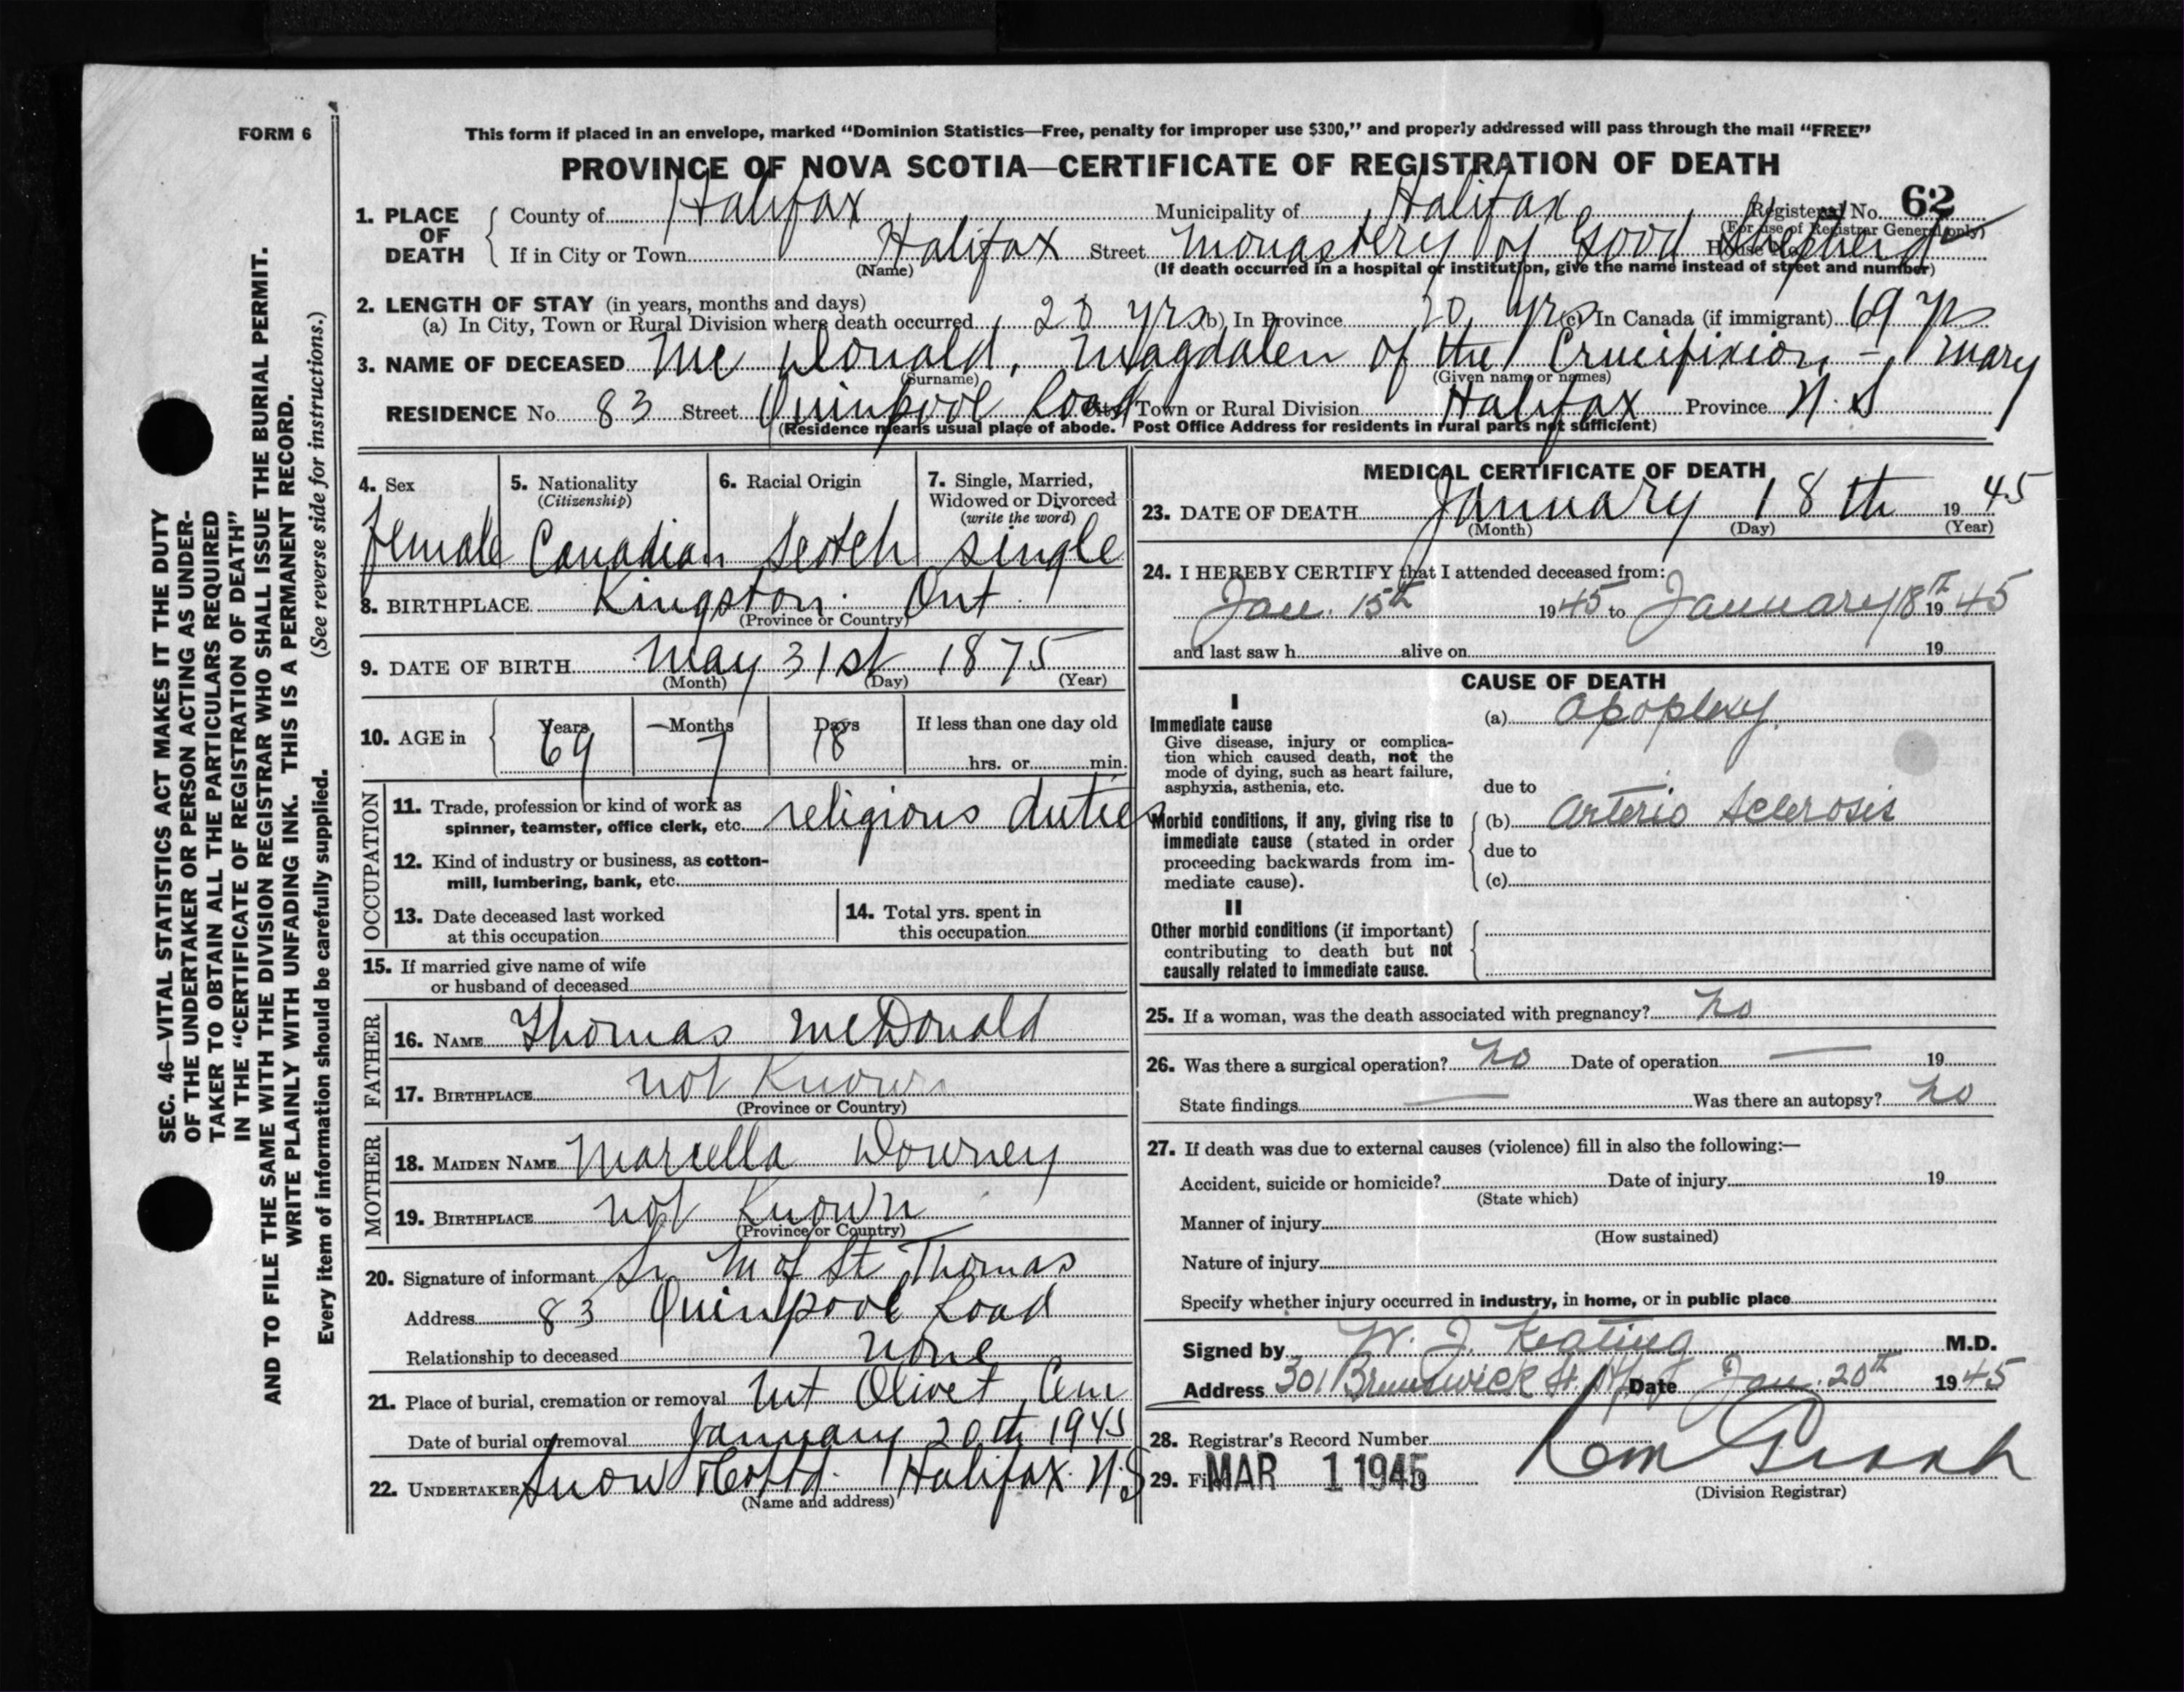 FORM 6
This form if placed in an envelope, marked "Dominion Statistics—Free, penalty for improper use $300," and properly addressed will pass through the mail "FREE"
PROVINCE OF NOVA SCOTIA—CERTIFICATE OF REGISTRATION OF DEATH
1. PLACE OF DEATH County of Halifax Municipality of Halifax Registered No. 62
(For use of Registrar General only)
If in City or Town Halifax Street Monastery of Good Shepherd House No.
(Name) (If death occurred in a hospital or institution, give the name instead of street and number)
2. LENGTH OF STAY (in years, months and days)
(a) In City, Town or Rural Division where death occurred 20 yrs (b) In Province 20 yrs (c) In Canada (if immigrant) 69 yrs
3. NAME OF DECEASED Mc Donald, Magdalen of the Crucifixion - Mary
(Surname) (Given name or names)
RESIDENCE No. 83 Street Quinpool Road City, Town or Rural Division Halifax Province N.S
(Residence means usual place of abode. Post Office Address for residents in rural parts not sufficient)
4. Sex Female
5. Nationality (Citizenship) Canadian
6. Racial Origin Scotch
7. Single, Married, Widowed or Divorced (write the word) single
8. BIRTHPLACE Kingston Ont
(Province or Country)
9. DATE OF BIRTH May 31st 1875
(Month) (Day) (Year)
10. AGE in Years 69 Months 7 Days 18 If less than one day old
hrs. or min.
OCCUPATION
11. Trade, profession or kind of work as
spinner, teamster, office clerk, etc. religious duties
12. Kind of industry or business, as cotton-
mill, lumbering, bank, etc.
13. Date deceased last worked
at this occupation
14. Total yrs. spent in
this occupation
15. If married give name of wife
or husband of deceased
FATHER
16. NAME Thomas McDonald
17. BIRTHPLACE not Known
(Province or Country)
MOTHER
18. MAIDEN NAME Marcella Downey
19. BIRTHPLACE not Known
(Province or Country)
20. Signature of informant Sr M of St Thomas
Address 83 Quinpool Road
Relationship to deceased None
21. Place of burial, cremation or removal Mt Olivet Cem
Date of burial or removal January 20th 1945
22. UNDERTAKER Snow & Co Ltd. Halifax N.S
(Name and address)
MEDICAL CERTIFICATE OF DEATH
23. DATE OF DEATH January 18th 1945
(Month) (Day) (Year)
24. I HEREBY CERTIFY that I attended deceased from:
Jan. 15th 1945 to January 18th 1945
and last saw h alive on 19
CAUSE OF DEATH
I
Immediate cause
Give disease, injury or complica-
tion which caused death, not the
mode of dying, such as heart failure,
asphyxia, asthenia, etc.
(a) Apoplexy.
due to
Morbid conditions, if any, giving rise to
immediate cause (stated in order
proceeding backwards from im-
mediate cause).
(b) Arterio Sclerosis
due to
(c)
II
Other morbid conditions (if important)
contributing to death but not
causally related to immediate cause.
25. If a woman, was the death associated with pregnancy? no
26. Was there a surgical operation? no Date of operation — 19
State findings — Was there an autopsy? no
27. If death was due to external causes (violence) fill in also the following:—
Accident, suicide or homicide? Date of injury 19
(State which)
Manner of injury
(How sustained)
Nature of injury
Specify whether injury occurred in industry, in home, or in public place
Signed by W. J. Keating M.D.
Address 301 Brunswick St. Date Jan. 20th 1945
28. Registrar's Record Number
29. Fi MAR 1 1945
(Division Registrar)
SEC. 46—VITAL STATISTICS ACT MAKES IT THE DUTY
OF THE UNDERTAKER OR PERSON ACTING AS UNDER-
TAKER TO OBTAIN ALL THE PARTICULARS REQUIRED
IN THE "CERTIFICATE OF REGISTRATION OF DEATH"
AND TO FILE THE SAME WITH THE DIVISION REGISTRAR WHO SHALL ISSUE THE BURIAL PERMIT.
WRITE PLAINLY WITH UNFADING INK. THIS IS A PERMANENT RECORD.
Every item of information should be carefully supplied. (See reverse side for instructions.)